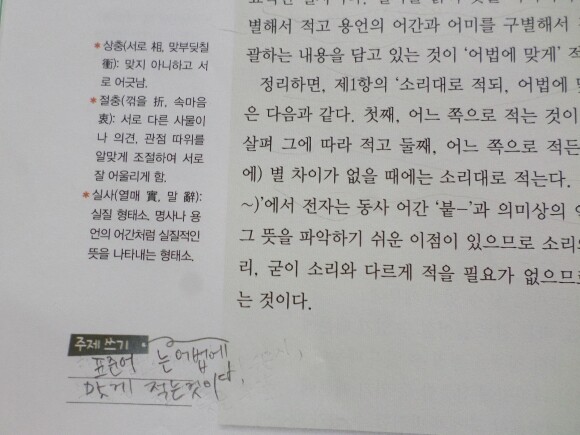 *상충(서로 相, 맞부딪칠
衝): 맞지 아니하고 서
로 어긋남.
*절충(꺾을 折, 속마음
衷): 서로 다른 사물이
나 의견, 관점 따위를
알맞게 조절하여 서로
잘 어울리게 함.
*실사(열매 實, 말 辭):
실질 형태소. 명사나 용
언의 어간처럼 실질적인
뜻을 나타내는 형태소.
별해서 적고 용언의 어간과 어미를 구별해서
괄하는 내용을 담고 있는 것이 ‘어법에 맞게’
정리하면, 제1항의 ‘소리대로 적되, 어법에
은 다음과 같다. 첫째, 어느 쪽으로 적는 것이
살펴 그에 따라 적고 둘째, 어느 쪽으로 적든
에) 별 차이가 없을 때에는 소리대로 적는다.
~)’에서 전자는 동사 어간 ‘붙-’과 의미상의
그 뜻을 파악하기 쉬운 이점이 있으므로 소리와
리, 굳이 소리와 다르게 적을 필요가 없으므로
는 것이다.
주제 쓰기
표준어 는 어법에
맞게 적는것이다.